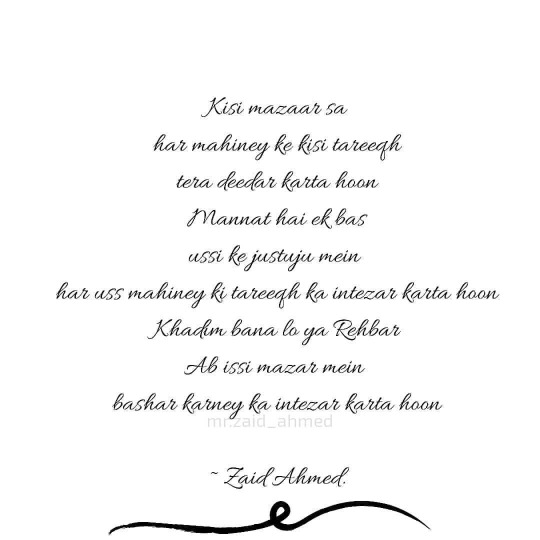 Kisi mazaar sa
har mahiney ke kisi tareeqh
tera deedar karta hoon
Mannat hai ek bas
ussi ke justuju mein
har uss mahiney ki tareeqh ka intezar karta hoon
Khadim bana lo ya Rehbar
Ab issi mazar mein
bashar karney ka intezar karta hoon
mr.zaid_ahmed
~ Zaid Ahmed.